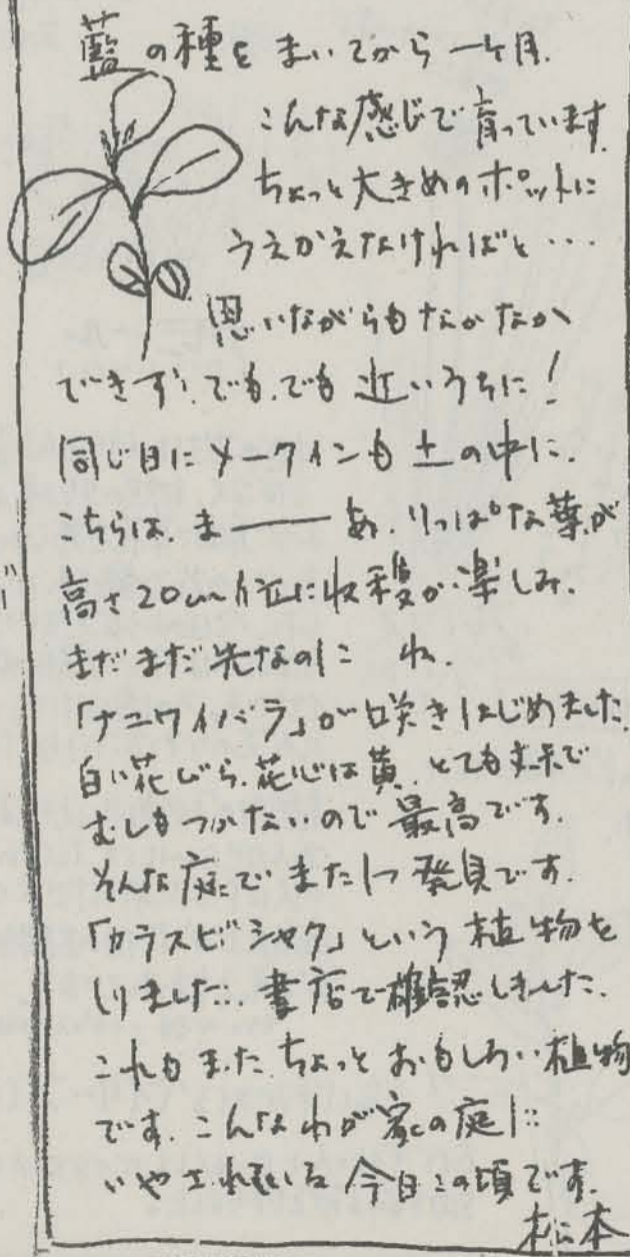 藍の種をまいてから一ヶ月.
こんな感じで育っています.
ちょっと大きめのポットに
うえかえなければと…
思いながらもなかなか
できず、でも、でも近いうちに!
同じ日にメークインも土の中に.
こちらは、ま――あ、りっぱな葉が
高さ20cm位に収穫が楽しみ.
まだまだ先なのに ね.
「ナニワイバラ」が咲きはじめました.
白い花びら、花心は黄、とても丈夫で
むしもつかないので最高です.
そんな庭でまた1つ発見です.
「カラスビシャク」という植物を
しりました. 書店で確認しました.
これもまた、ちょっとおもしろい植物
です. こんなわが家の庭に
いやされている今日この頃です.
松本